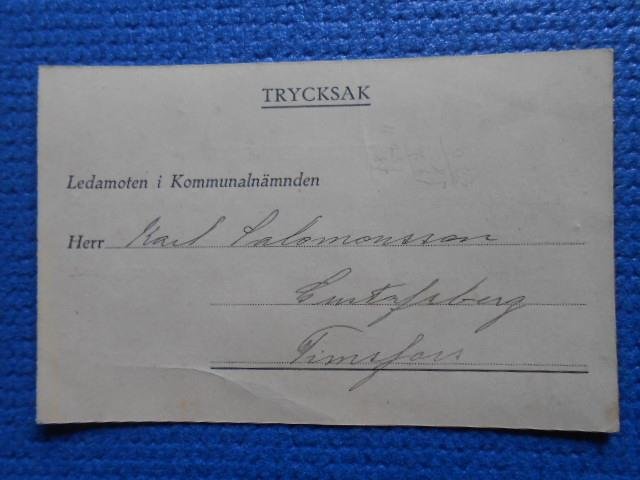 TRYCKSAK
Ledamoten i Kommunalnämnden
Herr Karl Salomonsson
Gustafsberg
Timsfors